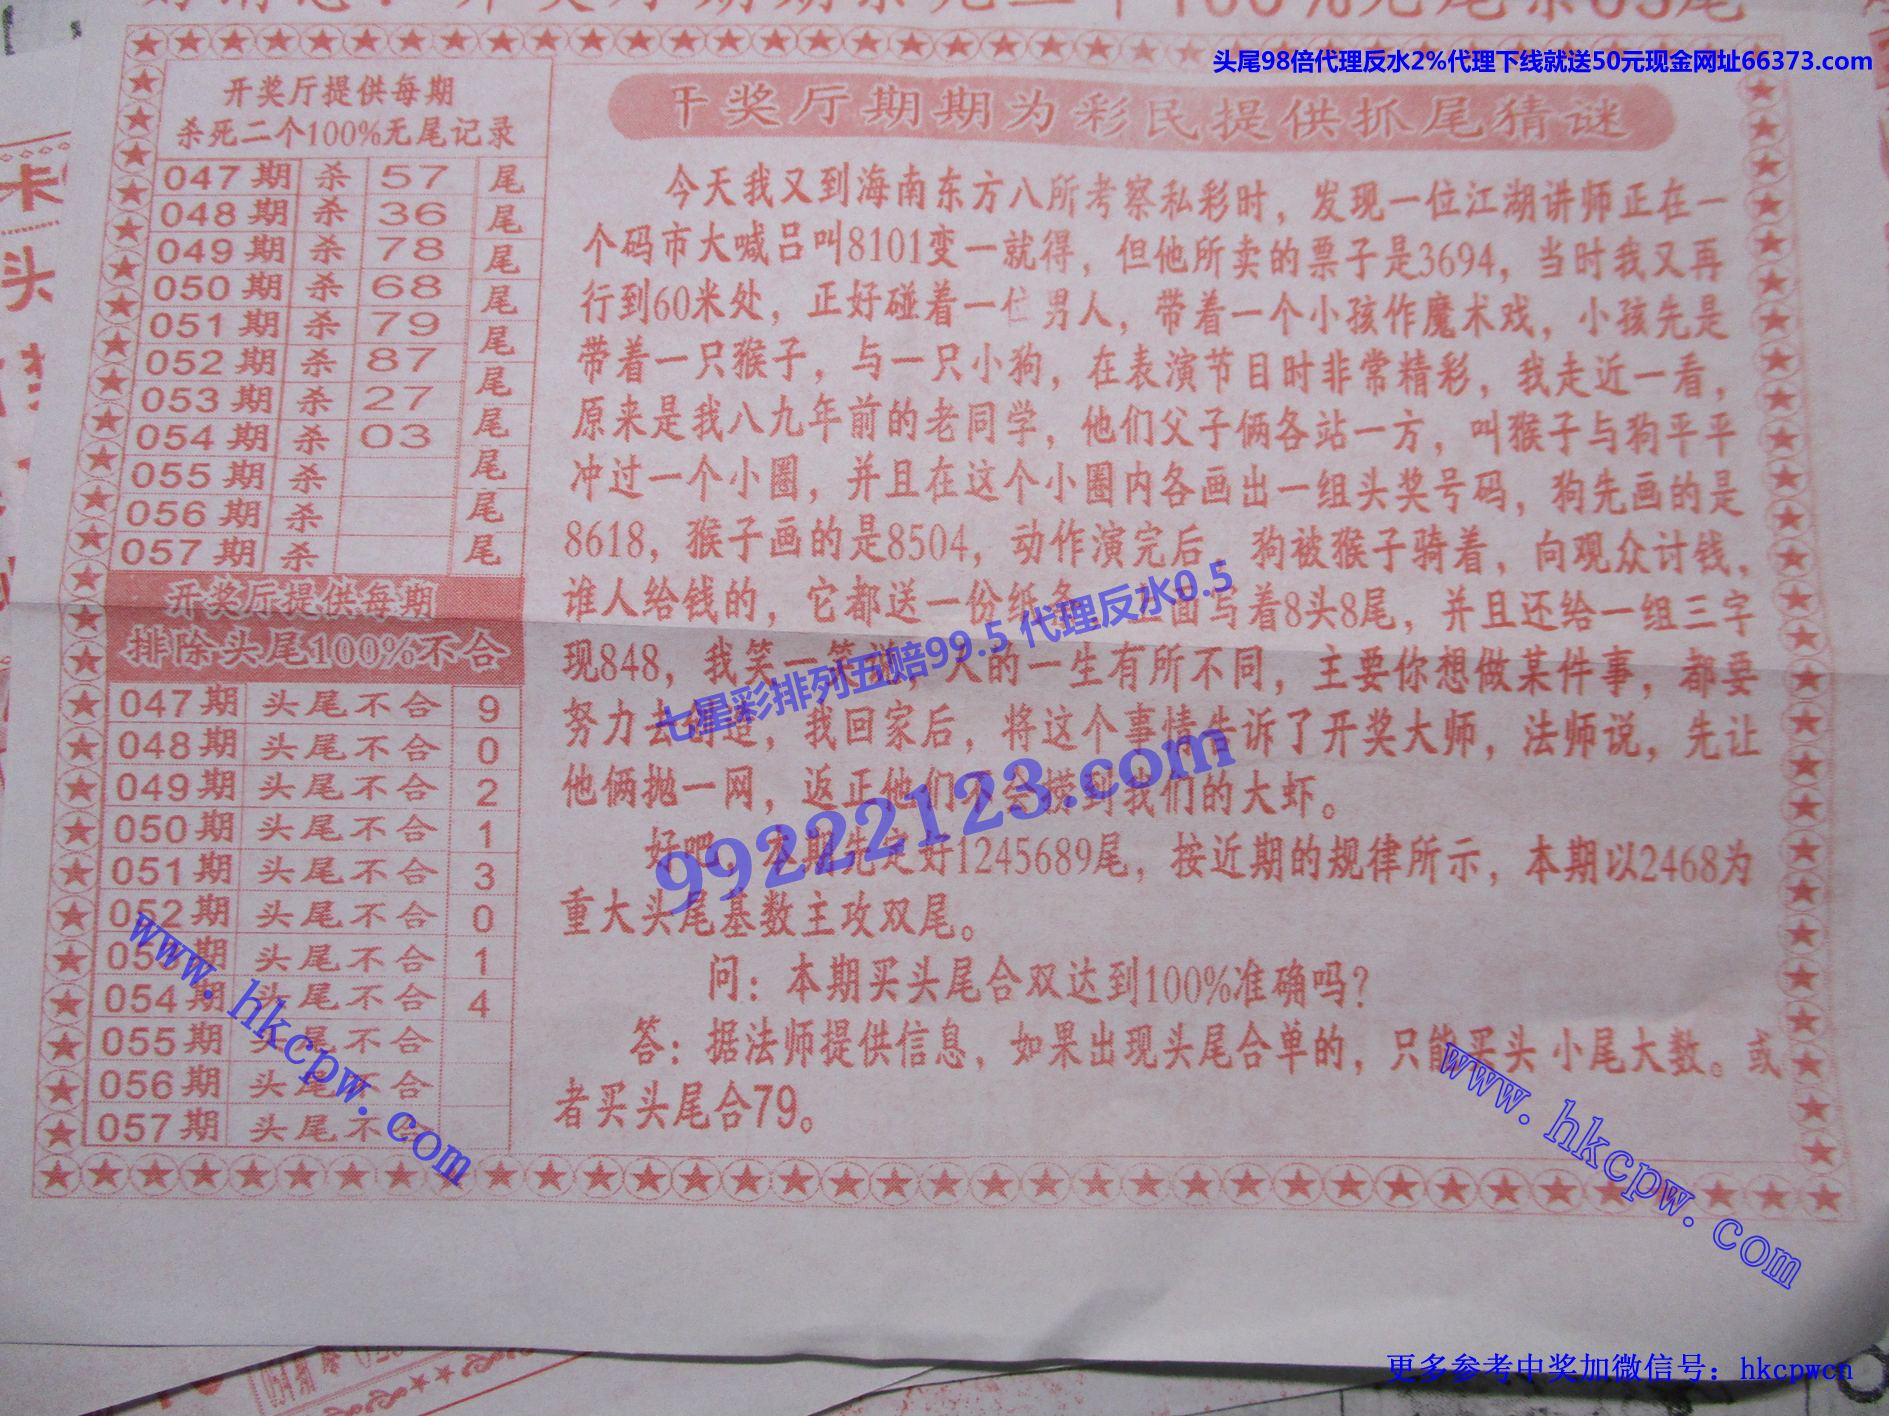 头尾98倍代理反水2%代理下线就送50元现金网址66373.com
开奖厅提供每期
杀死二个100%无尾记录
047期 杀 57 尾
048期 杀 36 尾
049期 杀 78 尾
050期 杀 68 尾
051期 杀 79 尾
052期 杀 87 尾
053期 杀 27 尾
054期 杀 03 尾
055期 杀 尾
056期 杀 尾
057期 杀 尾
开奖厅提供每期
排除头尾100%不合
047期 头尾不合 9
048期 头尾不合 0
049期 头尾不合 2
050期 头尾不合 1
051期 头尾不合 3
052期 头尾不合 0
053期 头尾不合 1
054期 头尾不合 4
055期 头尾不合
056期 头尾不合
057期 头尾不
奖厅期期为彩民提供抓尾猜谜
今天我又到海南东方八所考察私彩时，发现一位江湖讲师正在一
个码市大喊吕叫8101变一就得，但他所卖的票子是3694，当时我又再
行到60米处，正好碰着一位男人，带着一个小孩作魔术戏，小孩先是
带着一只猴子，与一只小狗，在表演节目时非常精彩，我走近一看，
原来是我八九年前的老同学，他们父子俩各站一方，叫猴子与狗平平
冲过一个小圈，并且在这个小圈内各画出一组头奖号码，狗先画的是
8618，猴子画的是8504，动作演完后，狗被猴子骑着，向观众讨钱，
谁人给钱的，它都送一份纸条，面写着8头8尾，并且还给一组三字
现848，我笑一笑说，人的一生有所不同，主要你想做某件事，都要
努力去创造，我回家后，将这个事情告诉了开奖大师，法师说，先让
他俩抛一网，返正他们不会捞到我们的大虾。
好吧，本期先定好1245689尾，按近期的规律所示，本期以2468为
重大头尾基数主攻双尾。
问：本期买头尾合双达到100%准确吗？
答：据法师提供信息，如果出现头尾合单的，只能买头小尾大数。或
者买头尾合79。
七星彩排列五赔99.5 代理反水0.5
99222123.com
www.hkcpw.com
www.hkcpw.com
更多参考中奖加微信号：hkcpwcn